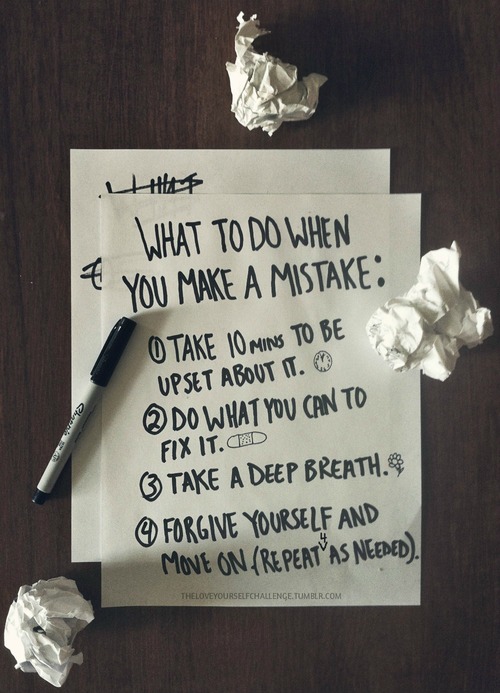 WHAT
WHAT TO DO WHEN
YOU MAKE A MISTAKE:
① TAKE 10 MINS TO BE
UPSET ABOUT IT.
② DO WHAT YOU CAN TO
FIX IT.
③ TAKE A DEEP BREATH.
④ FORGIVE YOURSELF AND
MOVE ON (REPEAT 4 AS NEEDED).
THELOVEYOURSELFCHALLENGE.TUMBLR.COM